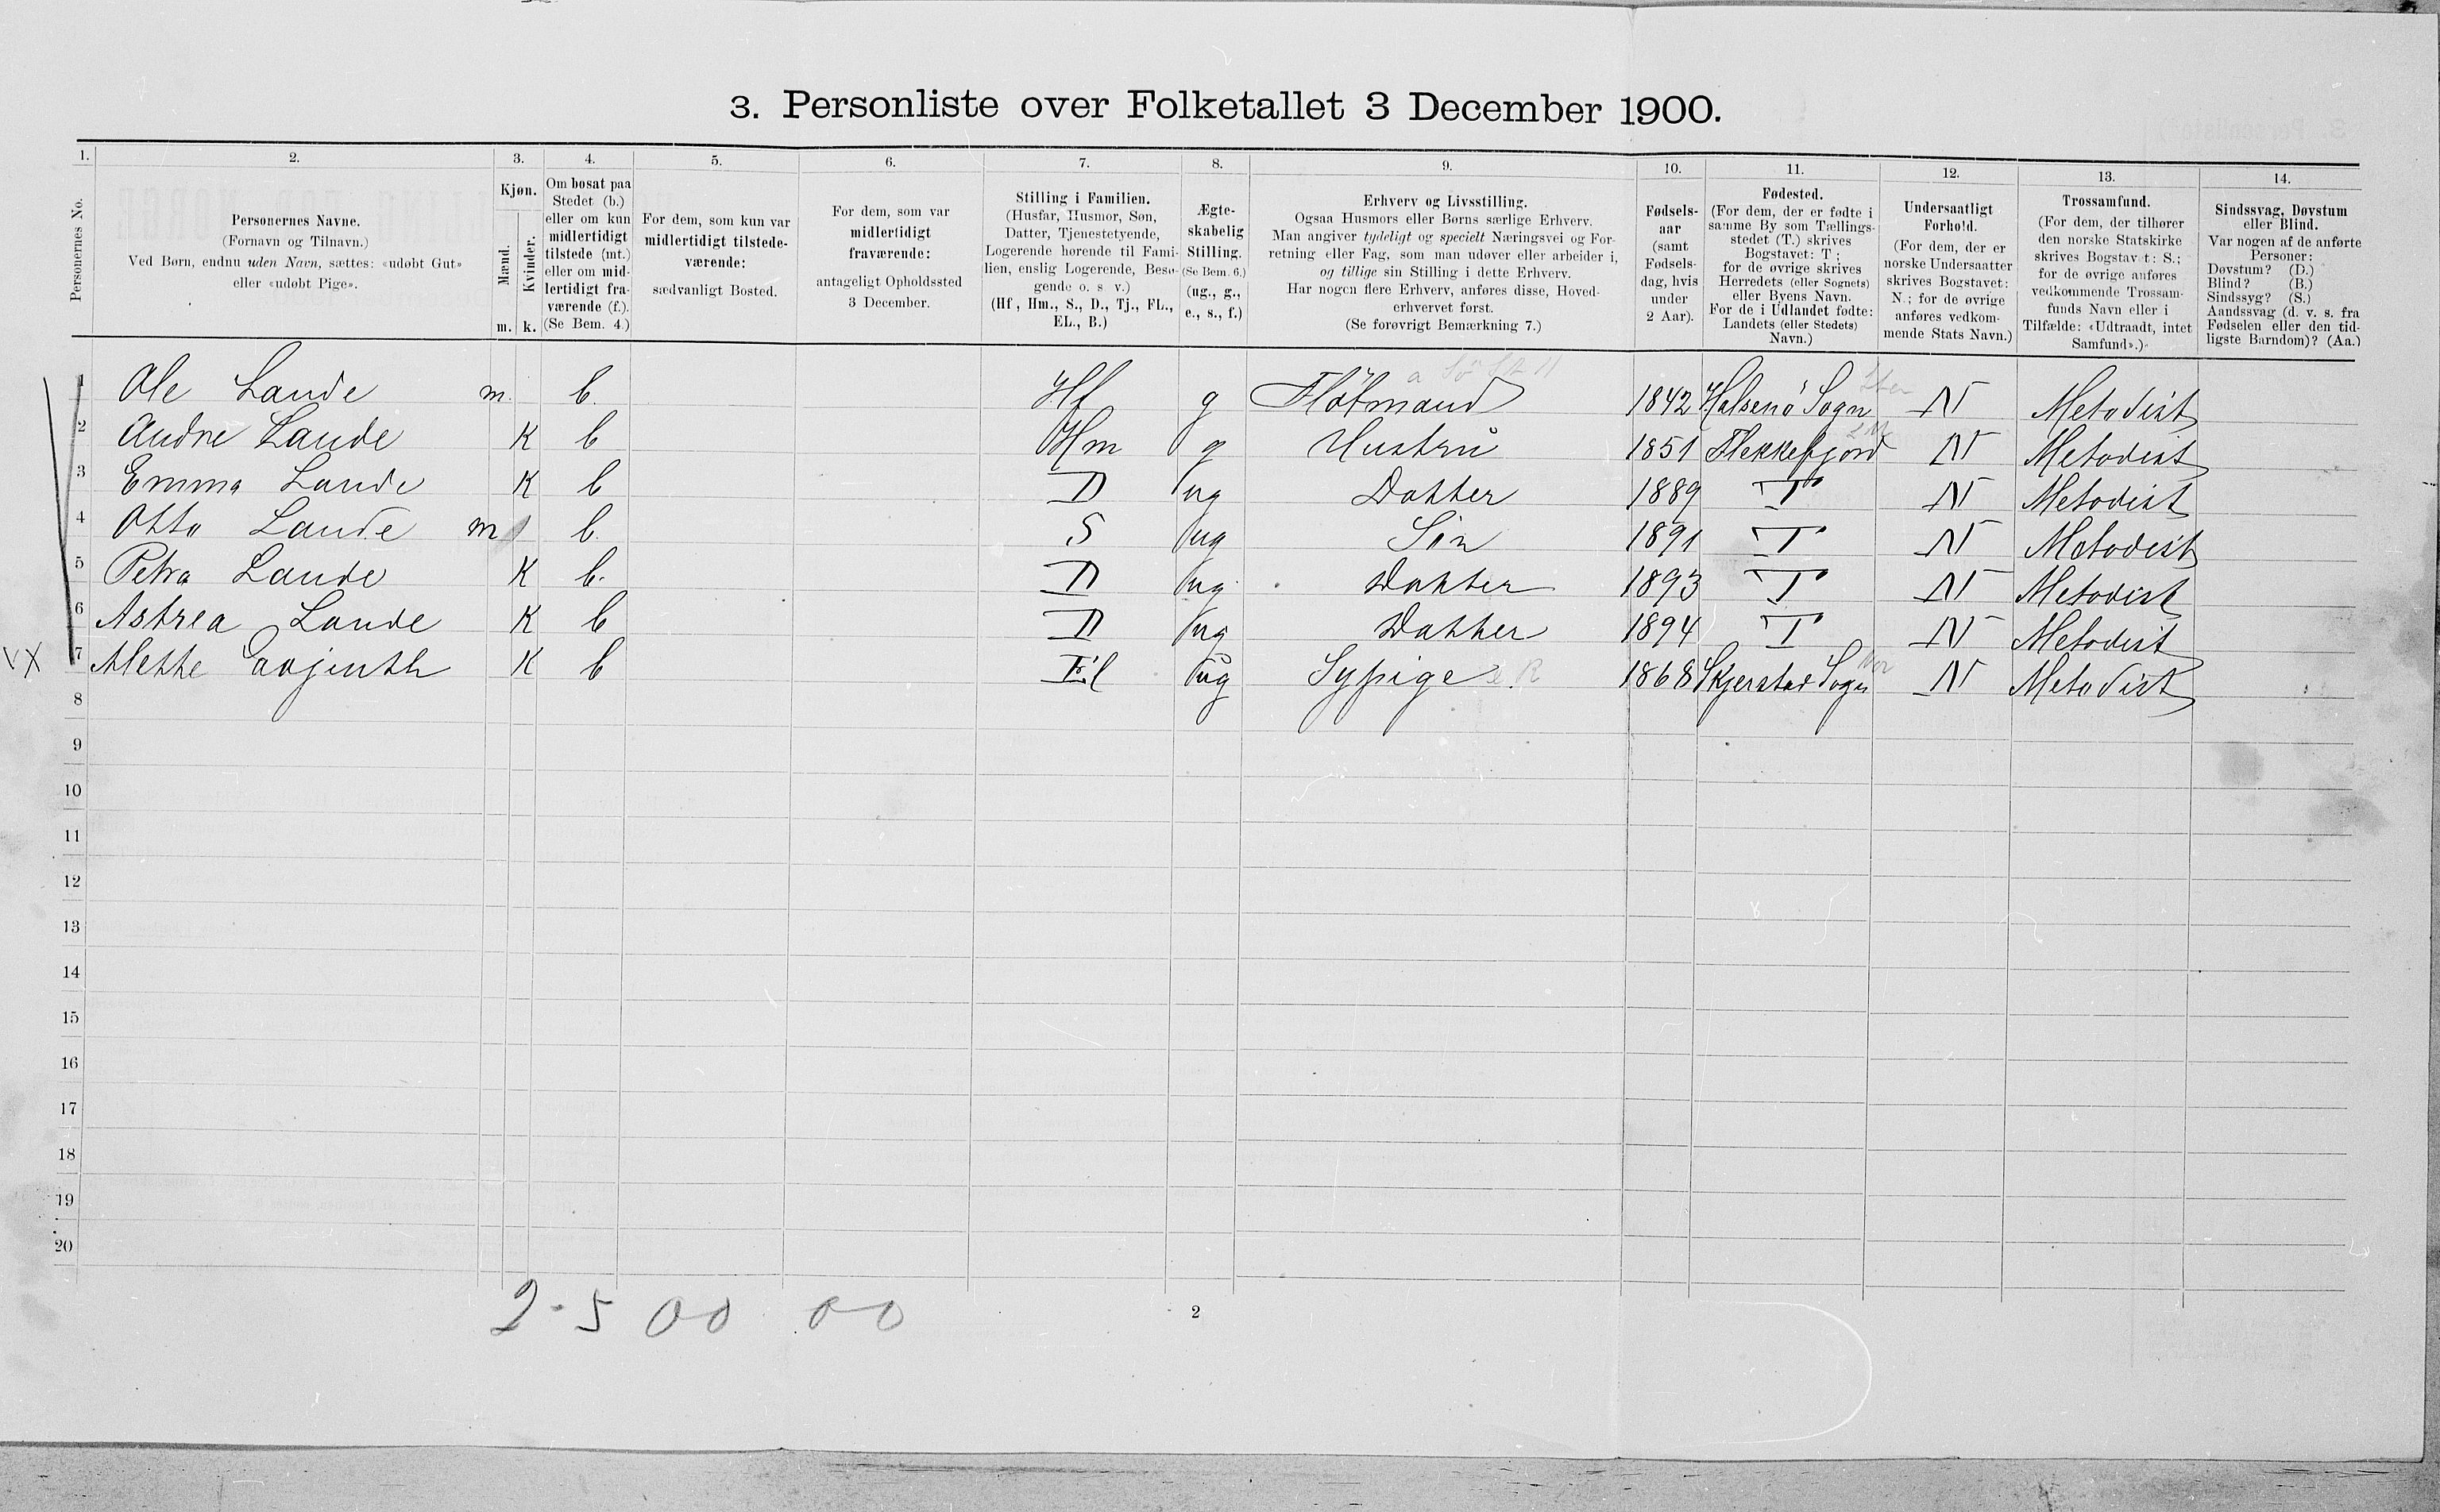 3. Personliste over Folketallet 3 December 1900.
1. 2. 3. 4. 5. 6. 7. 8. 9. 10. 11. 12. 13. 14.
Personernes No.
Personernes Navne.
(Fornavn og Tilnavn.)
Ved Børn, endnu uden Navn, sættes: «udøbt Gut»
eller «udøbt Pige».
Kjøn.
Mænd.
Kvinder.
m. k.
Om bosat paa
Stedet (b.)
eller om kun
midlertidigt
tilstede (mt.)
eller om mid-
lertidigt fra-
værende (f.).
(Se Bem. 4.)
For dem, som kun var
midlertidigt tilstede-
værende:
sædvanligt Bosted.
For dem, som var
midlertidigt
fraværende:
antageligt Opholdssted
3 December.
Stilling i Familien.
(Husfar, Husmor, Søn,
Datter, Tjenestetyende,
Logerende hørende til Fami-
lien, enslig Logerende, Besø-
gende o. s v.)
(Hf, Hm., S., D., Tj., FL.,
EL., B.)
Ægte-
skabelig
Stilling.
(Se Bem. 6.)
(ug., g.,
e., s., f.)
Erhverv og Livsstilling.
Ogsaa Husmors eller Børns særlige Erhverv.
Man angiver tydeligt og specielt Næringsvei og For-
retning eller Fag, som man udøver eller arbeider i,
og tillige sin Stilling i dette Erhverv.
Har nogen flere Erhverv, anføres disse, Hoved-
erhvervet først.
(Se forøvrigt Bemærkning 7.)
Fødsels-
aar
(samt
Fødsels-
dag, hvis
under
2 Aar).
Fødested.
(For dem, der er fødte i
samme By som Tællings-
stedet (T.) skrives
Bogstavet: T;
for de øvrige skrives
Herredets (eller Sognets)
eller Byens Navn.
For de i Udlandet fødte:
Landets (eller Stedets)
Navn.)
Undersaatligt
Forhold.
(For dem, der er
norske Undersaatter
skrives Bogstavet:
N.; for de øvrige
anføres vedkom-
mende Stats Navn.)
Trossamfund.
(For dem, der tilhører
den norske Statskirke
skrives Bogstavet: S.;
for de øvrige anføres
vedkommende Trossam-
funds Navn eller i
Tilfælde: «Udtraadt, intet
Samfund».)
Sindssvag, Døvstum
eller Blind.
Var nogen af de anførte
Personer:
Døvstum? (D.)
Blind? (B.)
Sindssyg? (S.)
Aandssvag (d. v. s. fra
Fødselen eller den tid-
ligste Barndom)? (Aa.)
1 Ole Lande m. b. Hf g Fløtmand 1842 Halsenø Sogn N Metodist
2 Andre Lande K b Hm g Hustru 1851 Flekkefjord N Metodist
3 Emma Lande K b D ug Datter 1889 T N Metodist
4 Otto Lande m b. S ug Søn 1891 T N Metodist
5 Petra Lande K b. D ug. Datter 1893 T N Metodist
6 Astrea Lande K b D ug Datter 1894 T N Metodist
VX 7 Mette K b El ug Sypige 1868 Skjerstad Sogn N Metodist
8
9
10
11
12
13
14
15
16
17
18
19
20
2-5 00 00
2